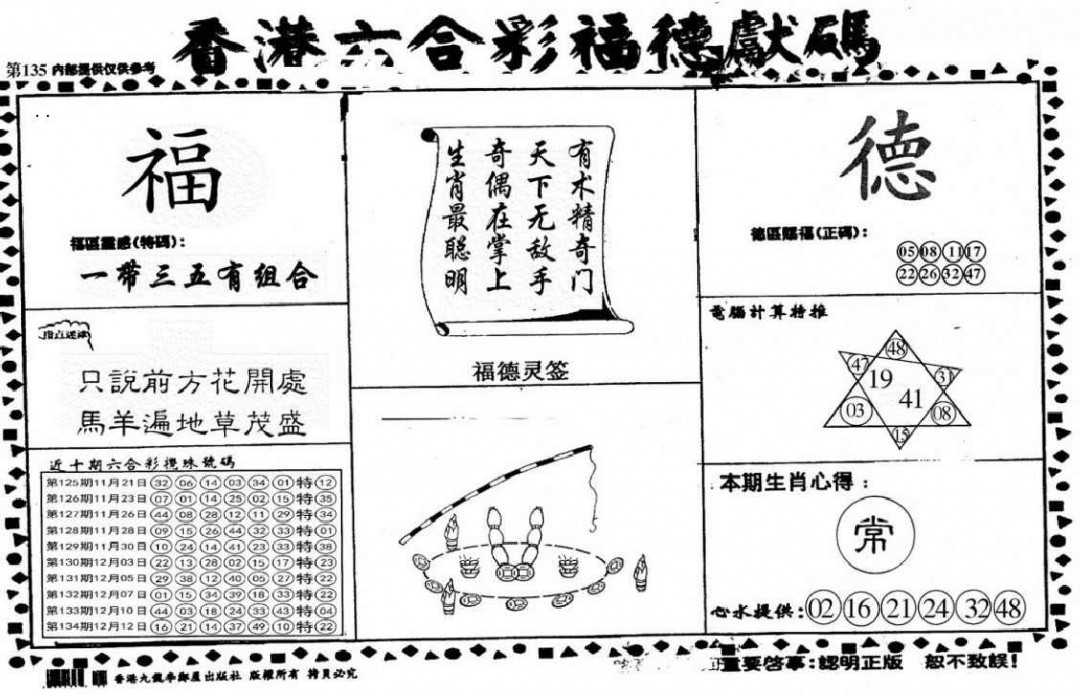 香港六合彩福德獻碼
第135 内部提供仅供参考
福
福區靈感(特碼):
一帶三五有组合
指点迷津
只說前方花開處
馬羊遍地草茂盛
近十期六合彩攪珠號碼
第125期11月21日 32 06 14 03 34 01 特 12
第126期11月23日 07 01 14 25 02 15 特 35
第127期11月26日 44 08 28 12 11 29 特 34
第128期11月28日 09 15 26 44 32 33 特 01
第129期11月30日 10 24 14 41 23 33 特 38
第130期12月03日 22 13 28 02 15 17 特 23
第131期12月05日 29 38 12 40 05 27 特 22
第132期12月07日 01 15 34 39 18 33 特 22
第133期12月10日 44 03 18 24 33 43 特 04
第134期12月12日 16 21 14 37 49 10 特 22
有术精奇门
天下无敌手
奇偶在掌上
生肖最聪明
福德灵签
德
德區賜福(正碼):
05 08 11 17
22 26 32 47
電腦計算特推
48
47 19 31
03 41 08
15
本期生肖心得:
常
心水提供: 02 16 21 24 32 48
香港九龍李鄭屋出版社 版權所有 拷貝必究
重要啓事:認明正版 般不致誤!